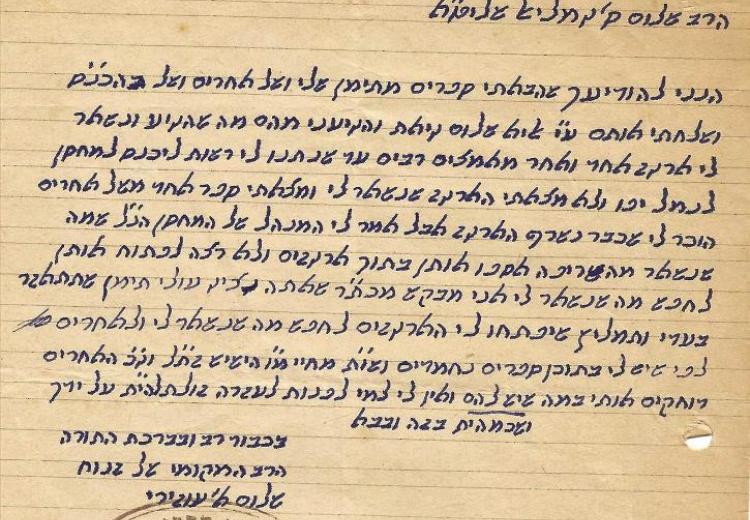 הרב שלום ק' גמליאל שליט"א
הנני להודיעך שהבאתי ספרים מתימן שלי ושל אחרים ושל בהכ"נ
ושלחתי אותם ע"י שלום והגיעני מהם מה שהגיע ונשאר
לי ארגב אחד ואחר מאמצים רבים עד שנתנו לי רשות ליכנס למחסן
לנמל יפו ולא מצאתי הארגב שנשאר לי ומצאתי ספר אחד משל אחרים
הוכר לי שכבר נשרף הארגב אבל אמר לי המנהל של המחסן הנ"ל שמה
שנשאר מהשריפה אספו אותן בתוך ארגבים ולא רצה לפתוח אותן
לחפש מה שנשאר לי אני מבקש מכת"ר שאתה נציג עולי תימן שתתאבר
בעדי ותמליץ שיפתחו לי הארגבים לחפש מה שנשאר לי ולאחרים
לפי שיש לי בתוכן ספרים נחמדים ושו"ת מחיי"מ הישיש וגם האחרים
דוחקים אותי במה שיש להם ואין לי למי לפנות לעזרה בולתה"ית על ידך
ושכמה"ית בבה ובבא
בכבוד רב ובברכת התורה
הרב המקומי של
שלום א' עוגירי